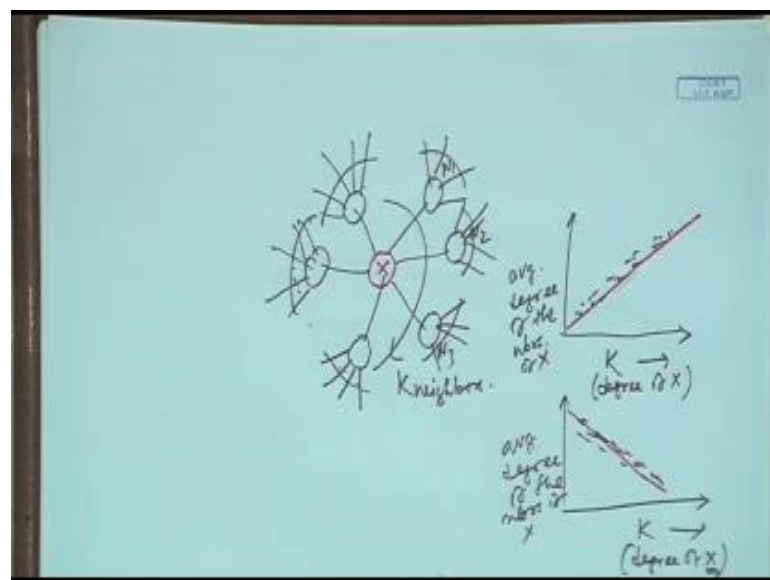 N1
N2
X
N3
K neighbors.
avg.
degree
of the
nbrs.
of X
K →
(degree of X)
avg
degree
of the
nbrs of
X
K →
(degree of X)